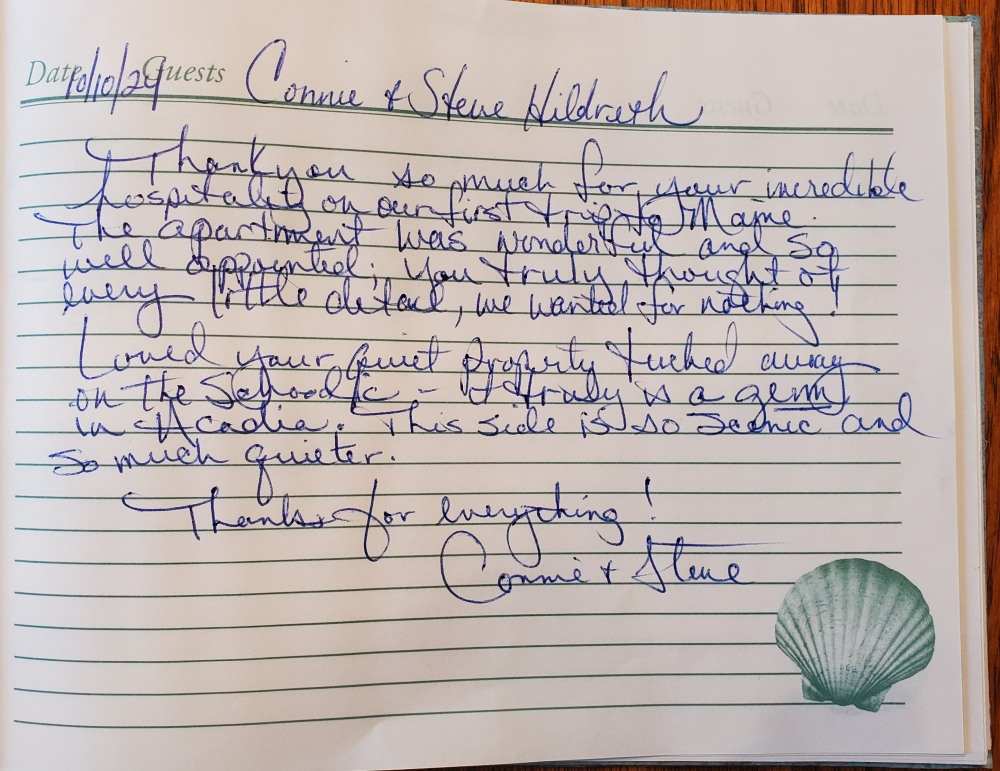 Date 10/10/29 Guests Connie + Steve Hildreth
Thank you so much for your incredible
hospitality on our first trip to Maine.
The apartment was wonderful and so
well appointed; you truly thought of
every little detail, we wanted for nothing!
Loved your quiet property tucked away
on the Schoodic - it truly is a gem
in Acadia. This side is so scenic and
so much quieter.
Thanks for everything!
Connie + Steve